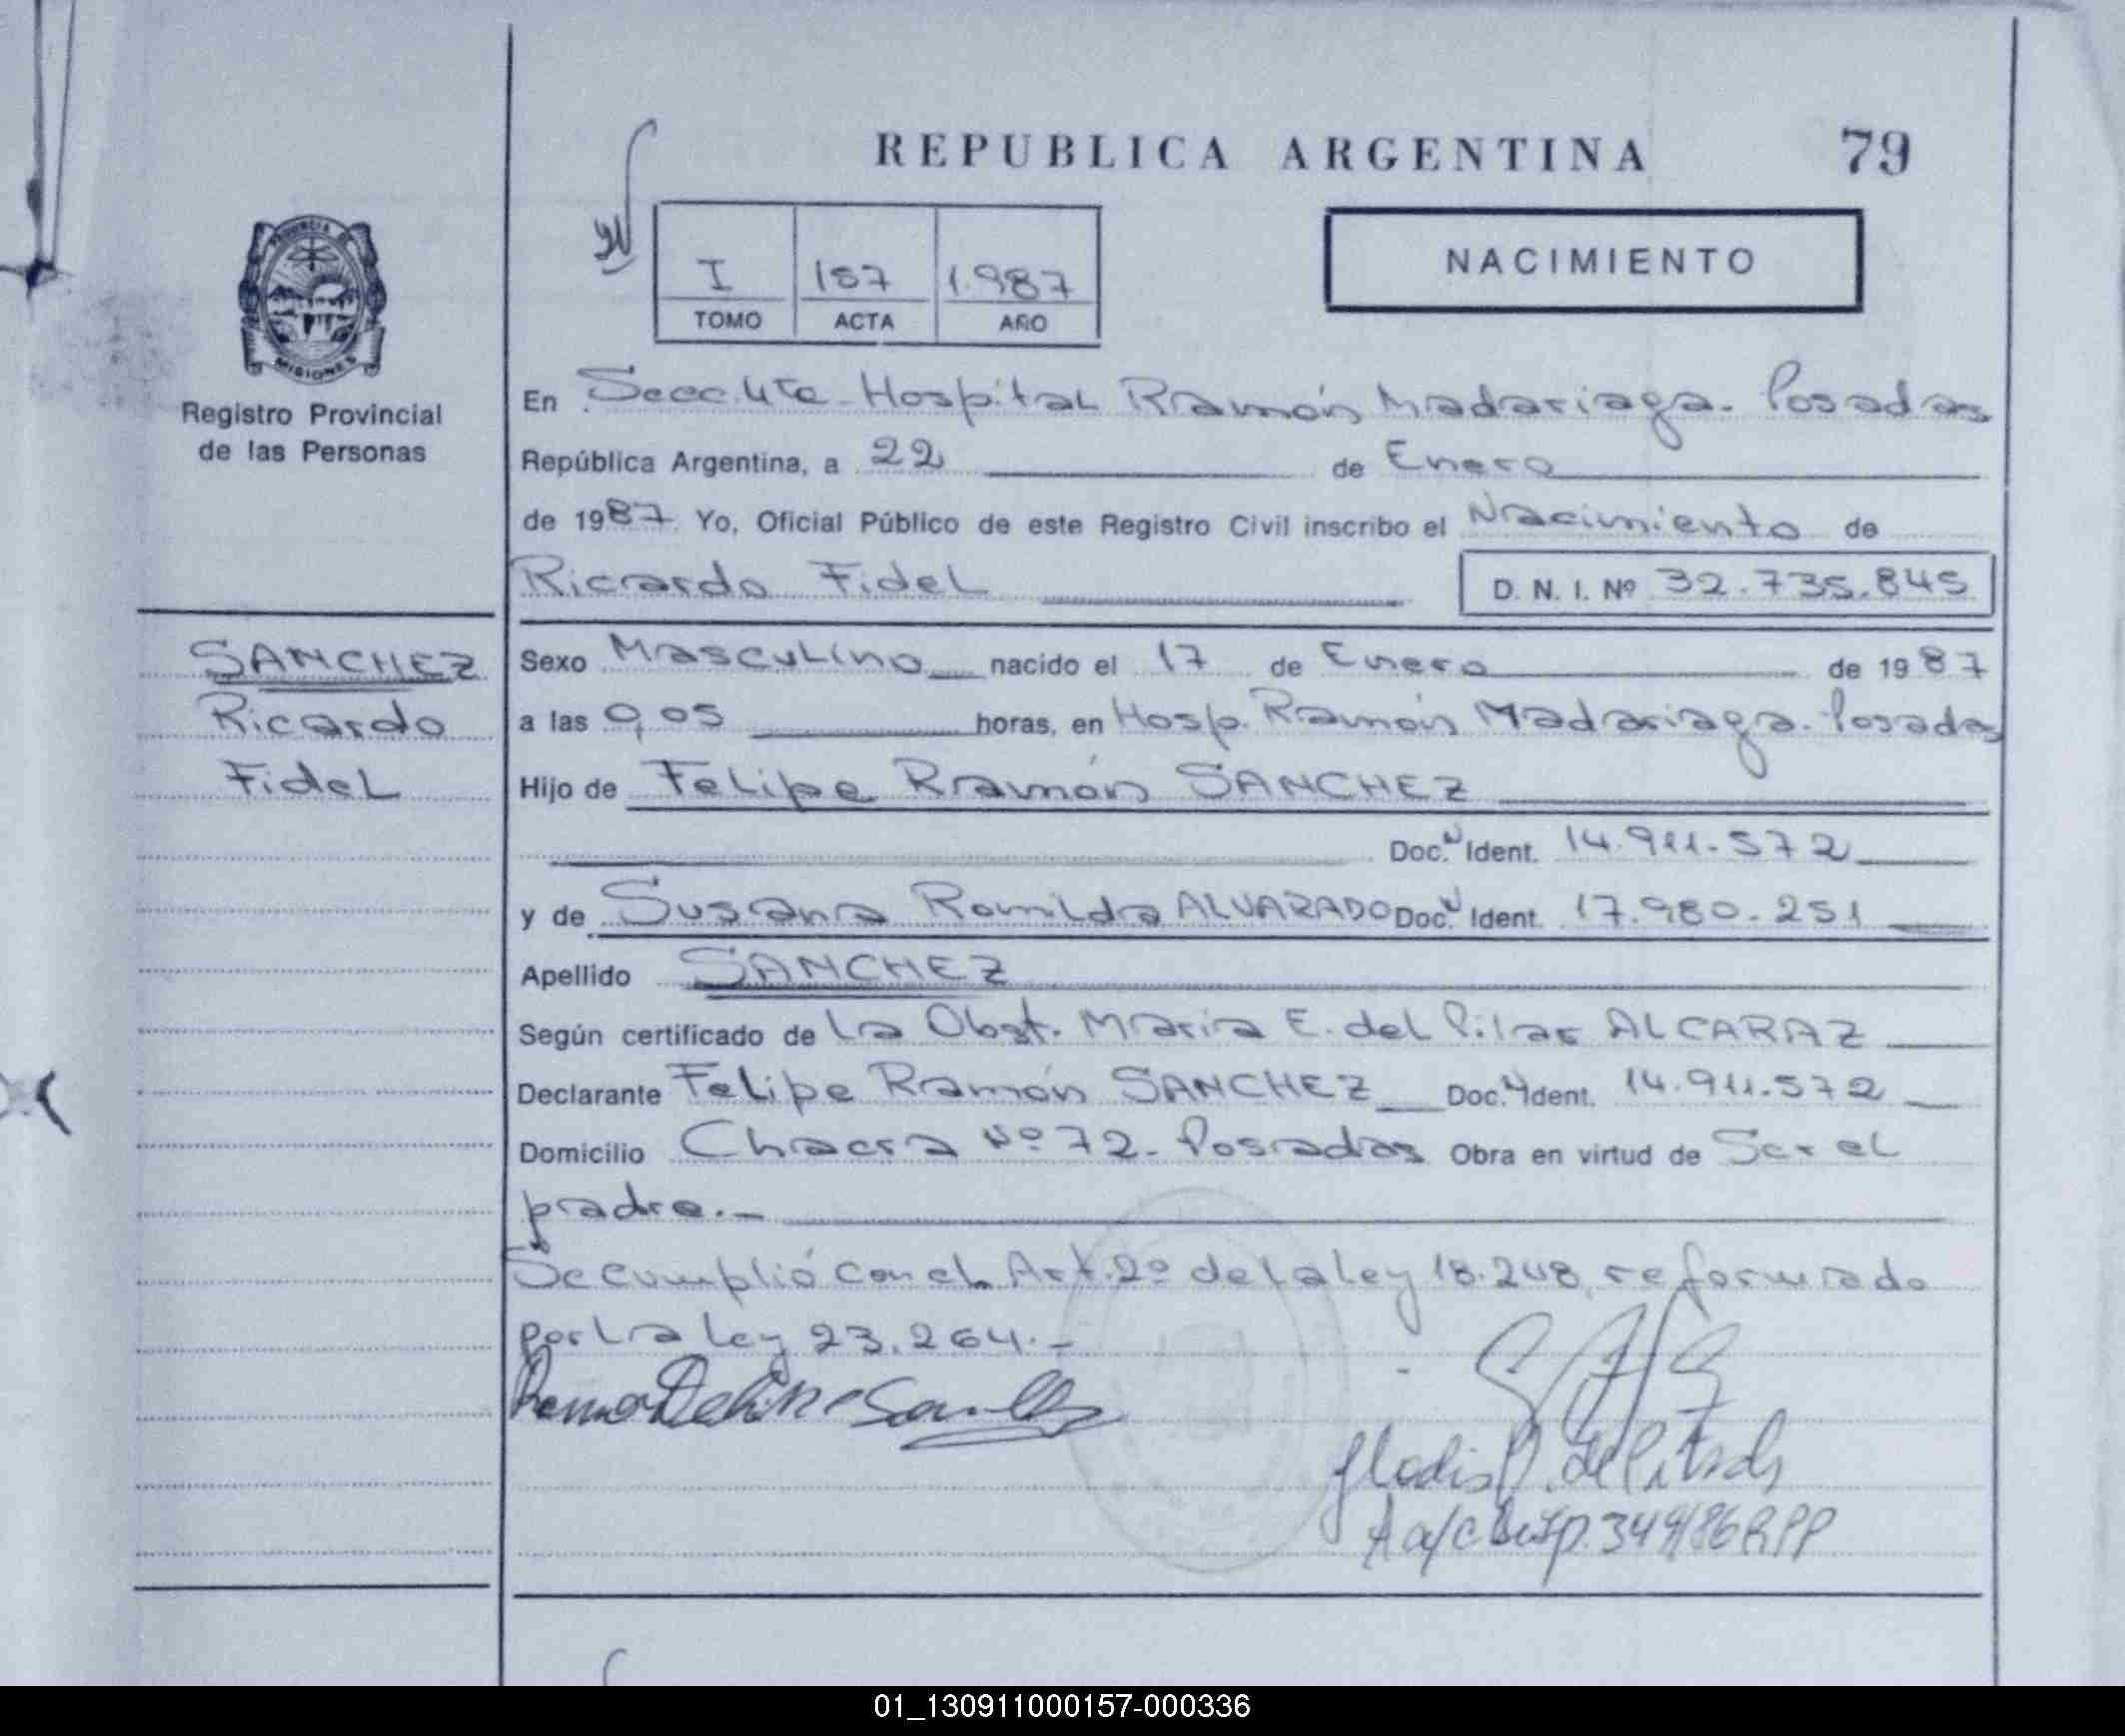 REPUBLICA ARGENTINA 79
I 157 1.987
TOMO ACTA AÑO
NACIMIENTO
PROVINCIA DE
MISIONES
Registro Provincial
de las Personas
SANCHEZ
Ricardo
Fidel
En Secc 4ta Hospital Ramón Madariaga. Posadas
República Argentina, a 22 de Enero
de 1987. Yo, Oficial Público de este Registro Civil inscribo el Nacimiento de
Ricardo Fidel D. N. I. Nº 32.735.845
Sexo Masculino nacido el 17 de Enero de 1987
a las 0,05 horas, en Hosp. Ramón Madariaga. Posadas
Hijo de Felipe Ramón SANCHEZ
Doc. Ident. 14.911.572
y de Susana Romilda ALVARADO Doc. Ident. 17.980.251
Apellido SANCHEZ
Según certificado de La Obst. Maria E. del Pilar ALCARAZ
Declarante Felipe Ramón SANCHEZ Doc. Ident. 14.911.572
Domicilio Chacra Nº 72- Posadas Obra en virtud de Ser el
padre.-
Se cumplió con el Art. 2º de la ley 18.248, reformado
por la ley 23.264.-
349/86 RPP
01_130911000157-000336